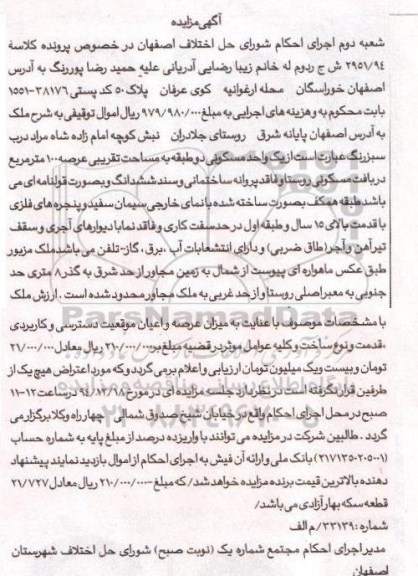 آگهی مزایده
شعبه دوم اجرای احکام شورای حل اختلاف اصفهان در خصوص پرونده کلاسه
۲۹۵۱/۹۴ ش ح ردوم له خانم زیبا رضایی آدریانی علیه حمید رضا پوررنگ به آدرس
اصفهان خوراسگان محله ارغوانیه کوی عرفان پلاک ۵۰ کد پستی ۳۸۱۷۶-۱۵۵۱
بابت محکوم به و هزینه های اجرایی به مبلغ ۹۷۹/۹۸۰/۰۰۰ ریال اموال توقیفی به شرح ملک
به آدرس اصفهان پایانه شرق روستای جلادران نبش کوچه امام زاده شاه مراد درب
سبز رنگ عبارت است از یک واحد مسکونی دو طبقه به مساحت تقریبی عرصه ۱۰۰ متر مربع
در بافت مسکونی روستا و فاقد پروانه ساختمانی و سند ششدانگ و بصورت قولنامه ای می
باشد طبقه همکف بصورت ساخته شده با نمای خارجی سیمان سفید و پنجره های فلزی
با قدمت بالای ۱۵ سال و طبقه اول در حد سفت کاری و فاقد نما با دیوارهای آجری و سقف
تیر آهن و آجر (طاق ضربی) و دارای انتشعابات آب ،برق ، گاز-تلفن می باشد ملک مزبور
طبق عکس ماهواره ای پیوست از شمال به زمین مجاور از حد شرق به گذر ۸ متری حد
جنوبی به معبر اصلی روستا و از حد غربی به ملک مجاور محدود شده است . ارزش ملک
با مشخصات موصوف با عنایت به میزان عرصه و اعیان موقعیت دسترسی و کاربردی
،قدمت و نوع ساخت و کلیه عوامل موثر در قضیه مبلغ ۲۱۰/۰۰۰/۰۰۰ ریال معادل ۲۱/۰۰۰/۰۰۰
تومان و بیست و یک میلیون تومان ارزیابی و اعلام برمی گردد که مورد اعتراض هیچ یک از
طرفین قرار نگرفته است در نظر دارد جلسه مزایده ای در مورخ ۹۴/۱۲/۹۸ در ساعت ۱۲-۱۱
صبح در محل اجرای احکام واقع در خیابان شیخ صدوق شمالی چهار راه وکلا برگزار می
گردد . طالبین شرکت در مزایده می توانند با واریز ده درصد از مبلغ پایه به شماره حساب
(۲۱۷۱۳۵۰۲۰۵۰۰۱) بانک ملی و ارائه آن فیش به اجرای احکام از اموال بازدید نمایند پیشنهاد
دهنده بالاترین قیمت برنده مزایده خواهد شد/ که مبلغ ۲۱۰/۰۰۰/۰۰۰ ریال معادل ۲۱/۷۲۷
قطعه سکه بهار آزادی می باشد/
شماره : ۳۳۱۳۹/م الف
مدیر اجرای احکام مجتمع شماره یک (نوبت صبح) شورای حل اختلاف شهرستان
اصفهان
ParsNamadData